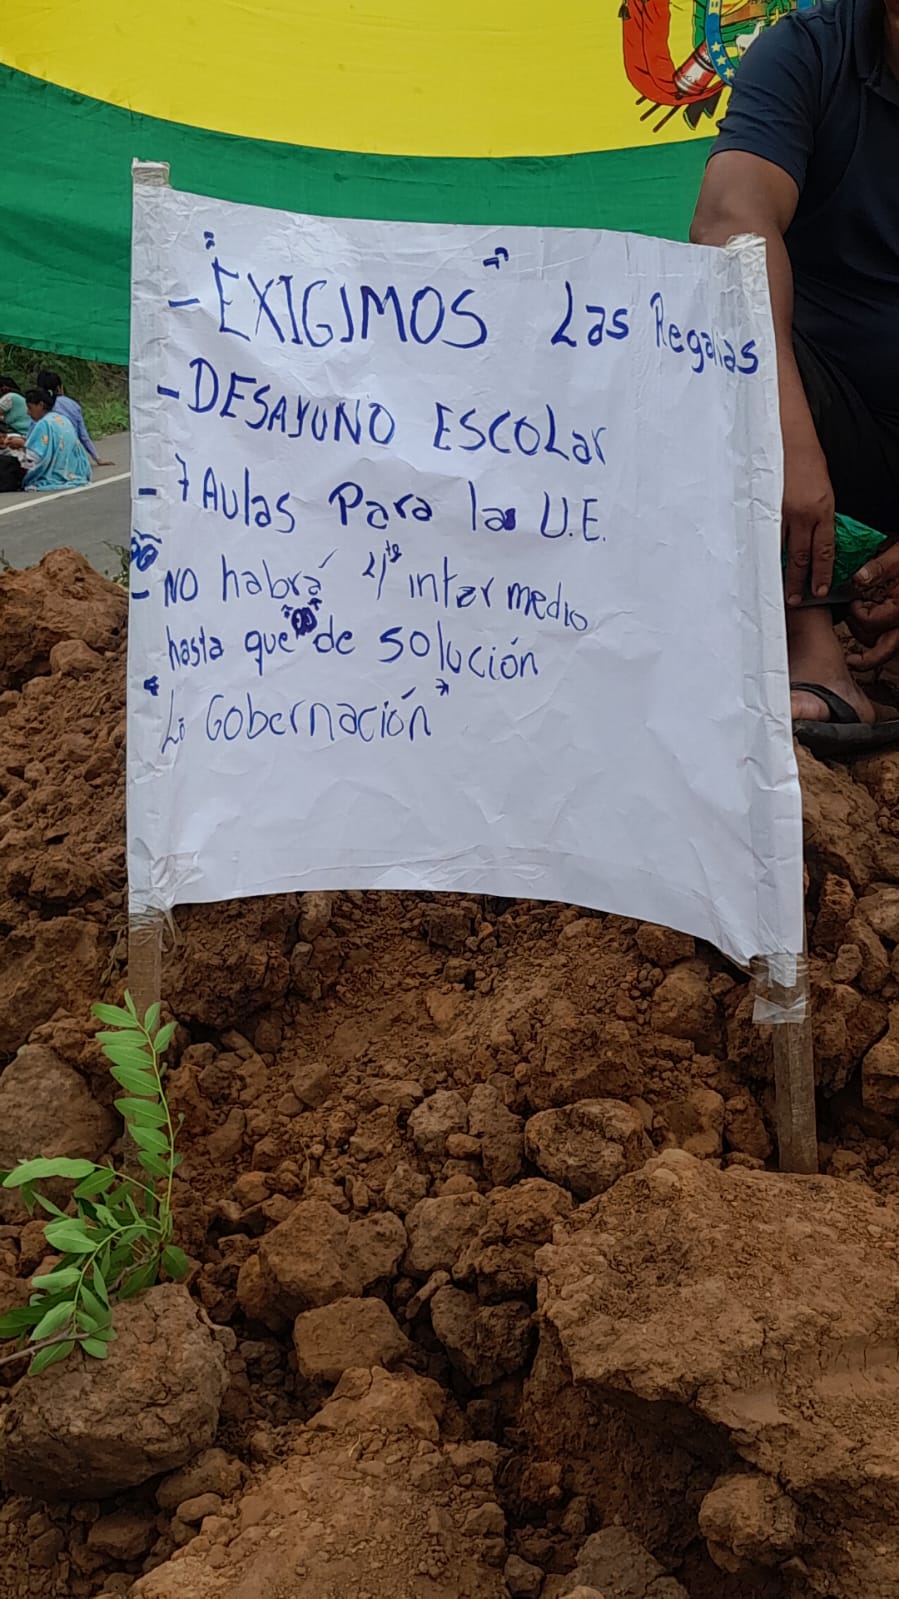 - "EXIGIMOS" Las Regalias
- DESAYUNO ESCOLar
- 7 Aulas Para las U.E.
- NO habrá 4to intermedio
hasta que de solución
"La Gobernación"